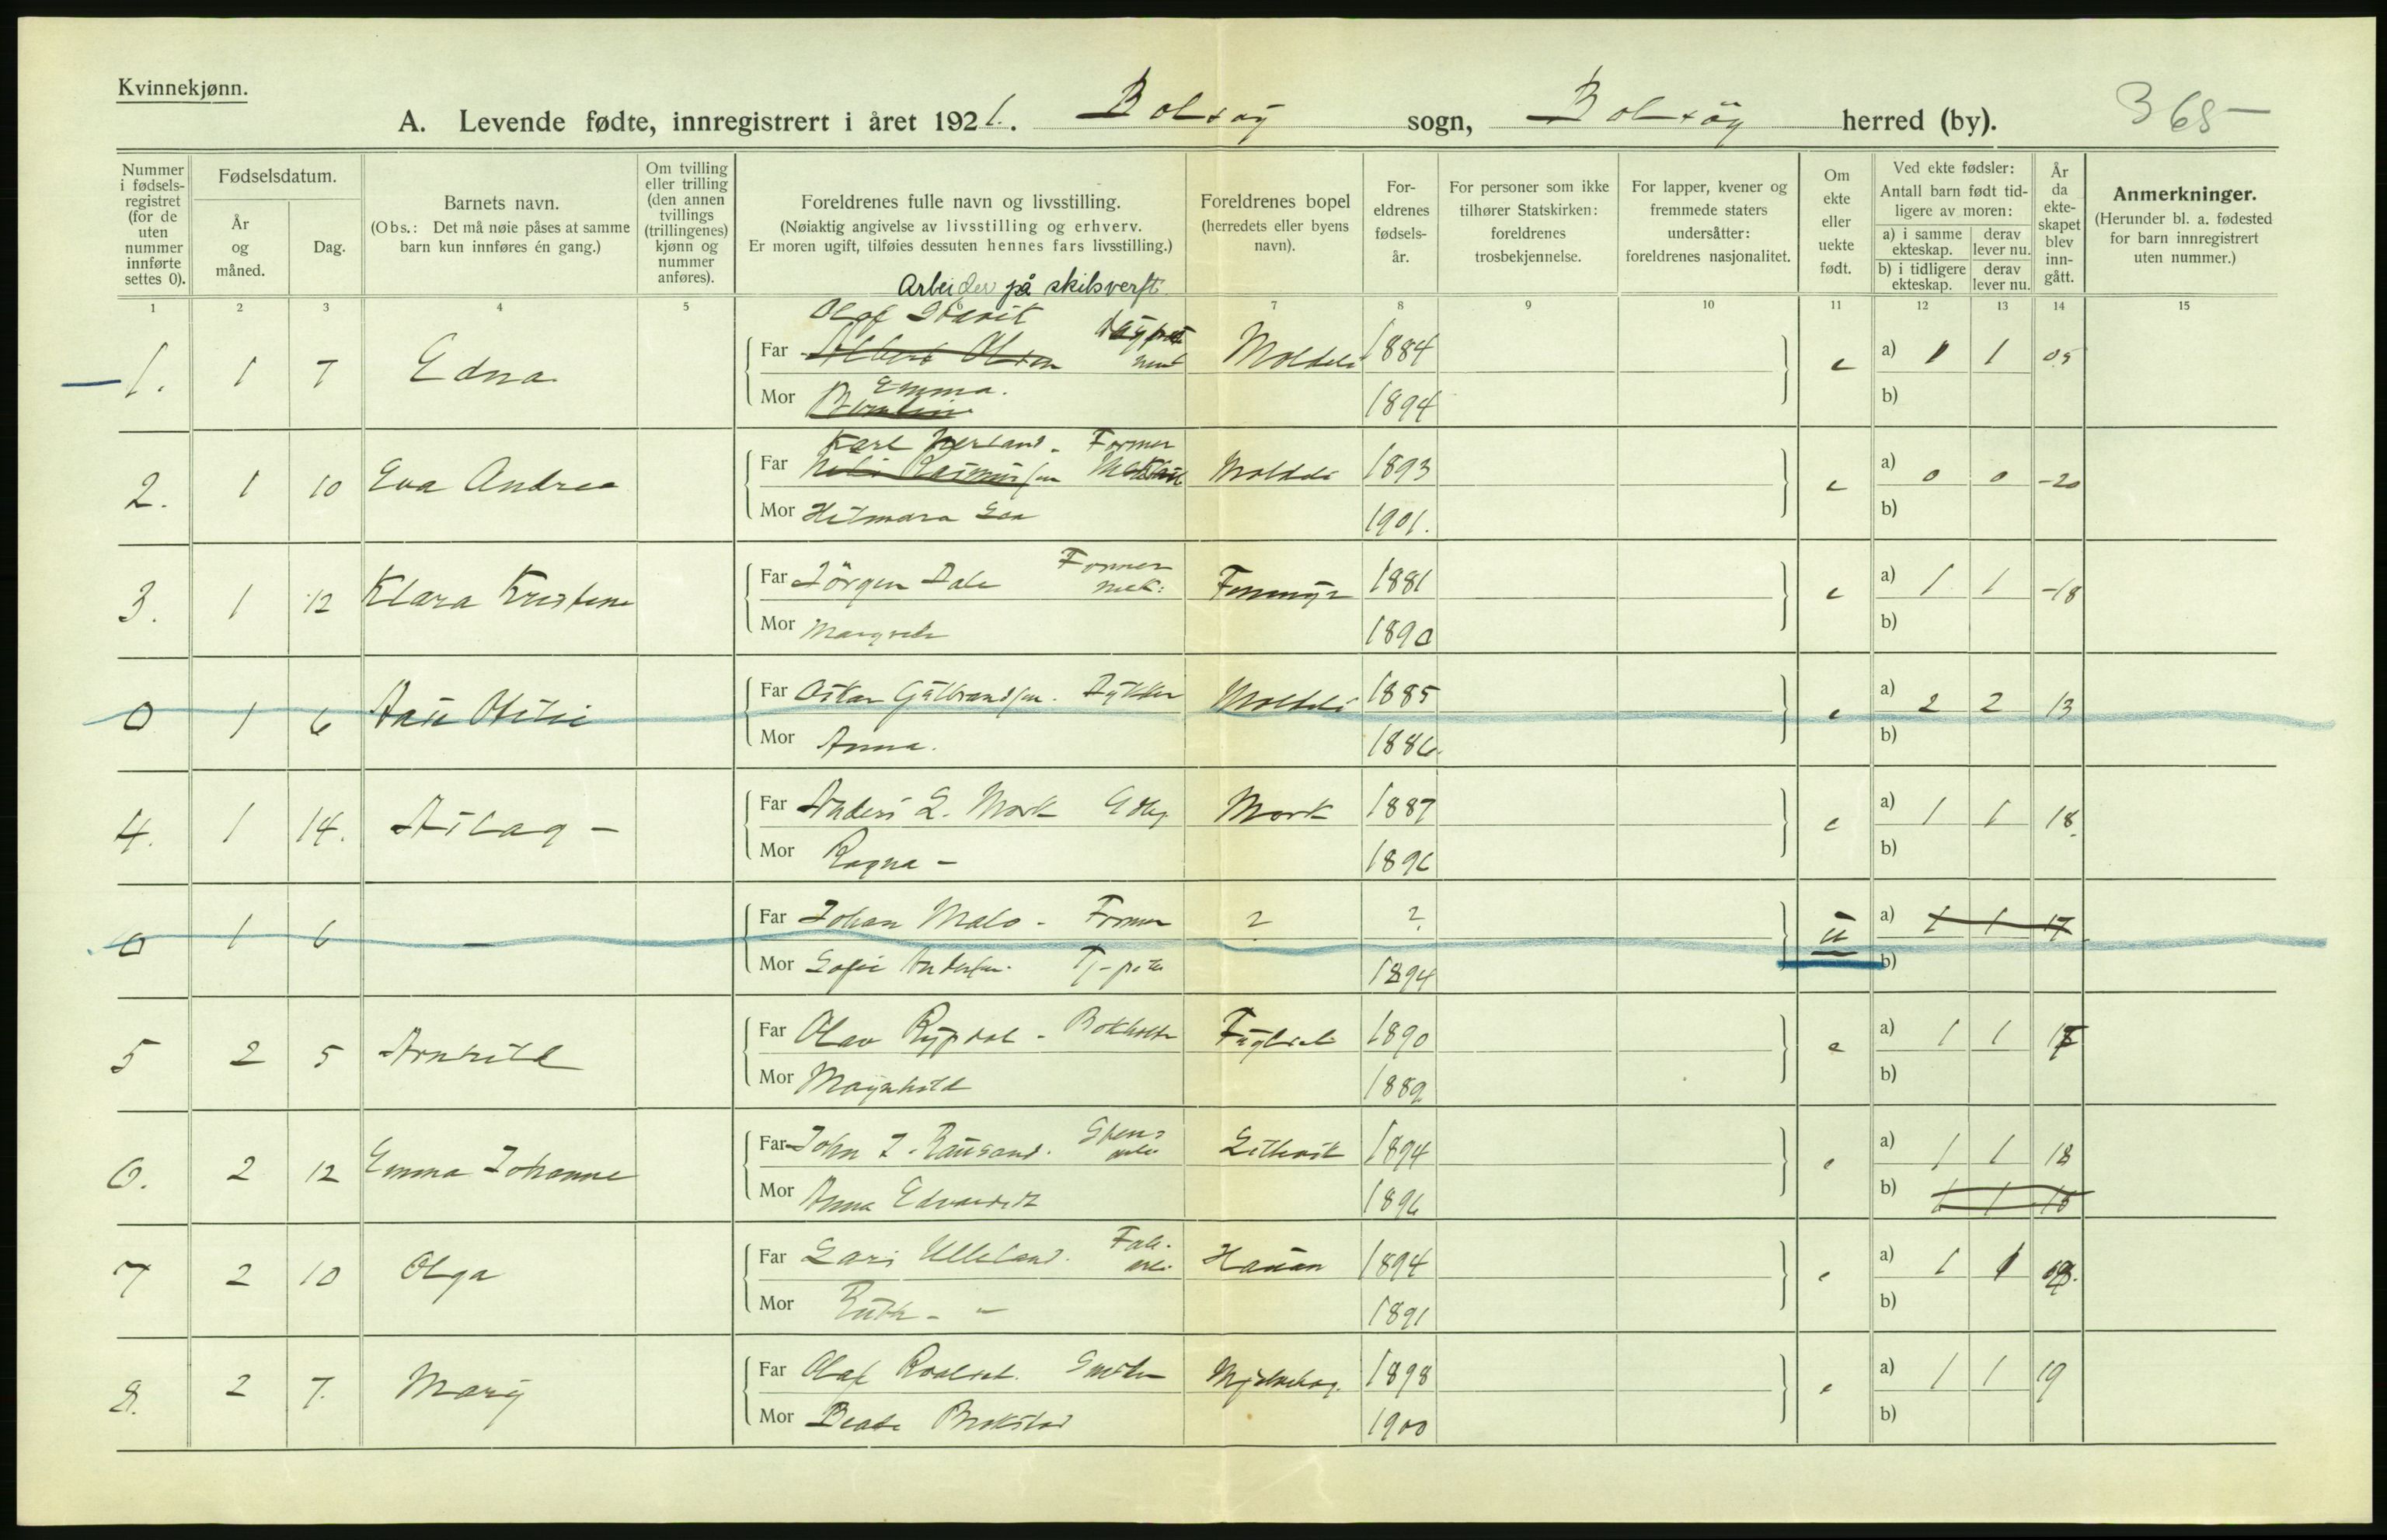 Kvinnekjønn.
A. Levende fødte, innregistrert i året 1921. Bolsøy sogn, Bolsøy herred (by). 365
Nummer i fødsels-registret (for de uten nummer innførte settes 0).
Fødselsdatum.
År og måned.
Dag.
Barnets navn.
(Obs.: Det må nøie påses at samme barn kun innføres én gang.)
Om tvilling eller trilling (den annen tvillings (trillingenes) kjønn og nummer anføres).
Foreldrenes fulle navn og livsstilling.
(Nøiaktig angivelse av livsstilling og erhverv.
Er moren ugift, tilføies dessuten hennes fars livsstilling.)
Foreldrenes bopel
(herredets eller byens navn).
For-eldrenes fødsels-år.
For personer som ikke tilhører Statskirken: foreldrenes trosbekjennelse.
For lapper, kvener og fremmede staters undersåtter: foreldrenes nasjonalitet.
Om ekte eller uekte født.
Ved ekte fødsler:
Antall barn født tid-ligere av moren:
a) i samme ekteskap. derav lever nu.
b) i tidligere ekteskap. derav lever nu.
År da ekte-skapet blev inn-gått.
Anmerkninger.
(Herunder bl. a. fødested for barn innregistrert uten nummer.)
1 2 3 4 5 6 7 8 9 10 11 12 13 14 15
Arbeider på skibsverft
Olaf
1. 1 7 Edna Far Albert Olsen 1884 e a) 1 1 05
Mor Emma. 1894 b)
Karl Former
2. 1 10 Eva Andrea Far 1893 e a) 0 0 -20
Mor Hilmara 1901. b)
3. 1 12 Klara Kristine Far Jörgen Dale Former mek: 1881 e a) 1 1 -18
Mor Margrete 1890 b)
0 1 6 Far Oskar Gulbrandsen. 1885 e a) 2 2 13
Mor Anna. 1886. b)
4. 1 14. Aslaug - Far Anders L. Mork Gbr. Mork 1887 e a) 1 1 18
Mor Ragna - 1896 b)
0 1 6 — Far Johan Malo - Former ? ? u a) 1 1 17
Mor Sofie Andersen. 1894 b)
5 2 5 Arnhild Far Olav Rypdal - Bokholder Fuglset 1890 e a) 1 1
Mor Magnhild 1889 b)
6. 2 12 Emma Johanne Far John J. Rausand. 1894 e a) 1 1 18
Mor Anna 1896 b) 1 1 18
7 2 10 Olga Far Lars Ulleland. Fab. arb. Hauan 1894 e a) 1 1
Mor Ruth - " 1891 b)
8. 2 7. Mary Far Olaf 1898 e a) 1 1 19
Mor Beate Brokstad 1900 b)